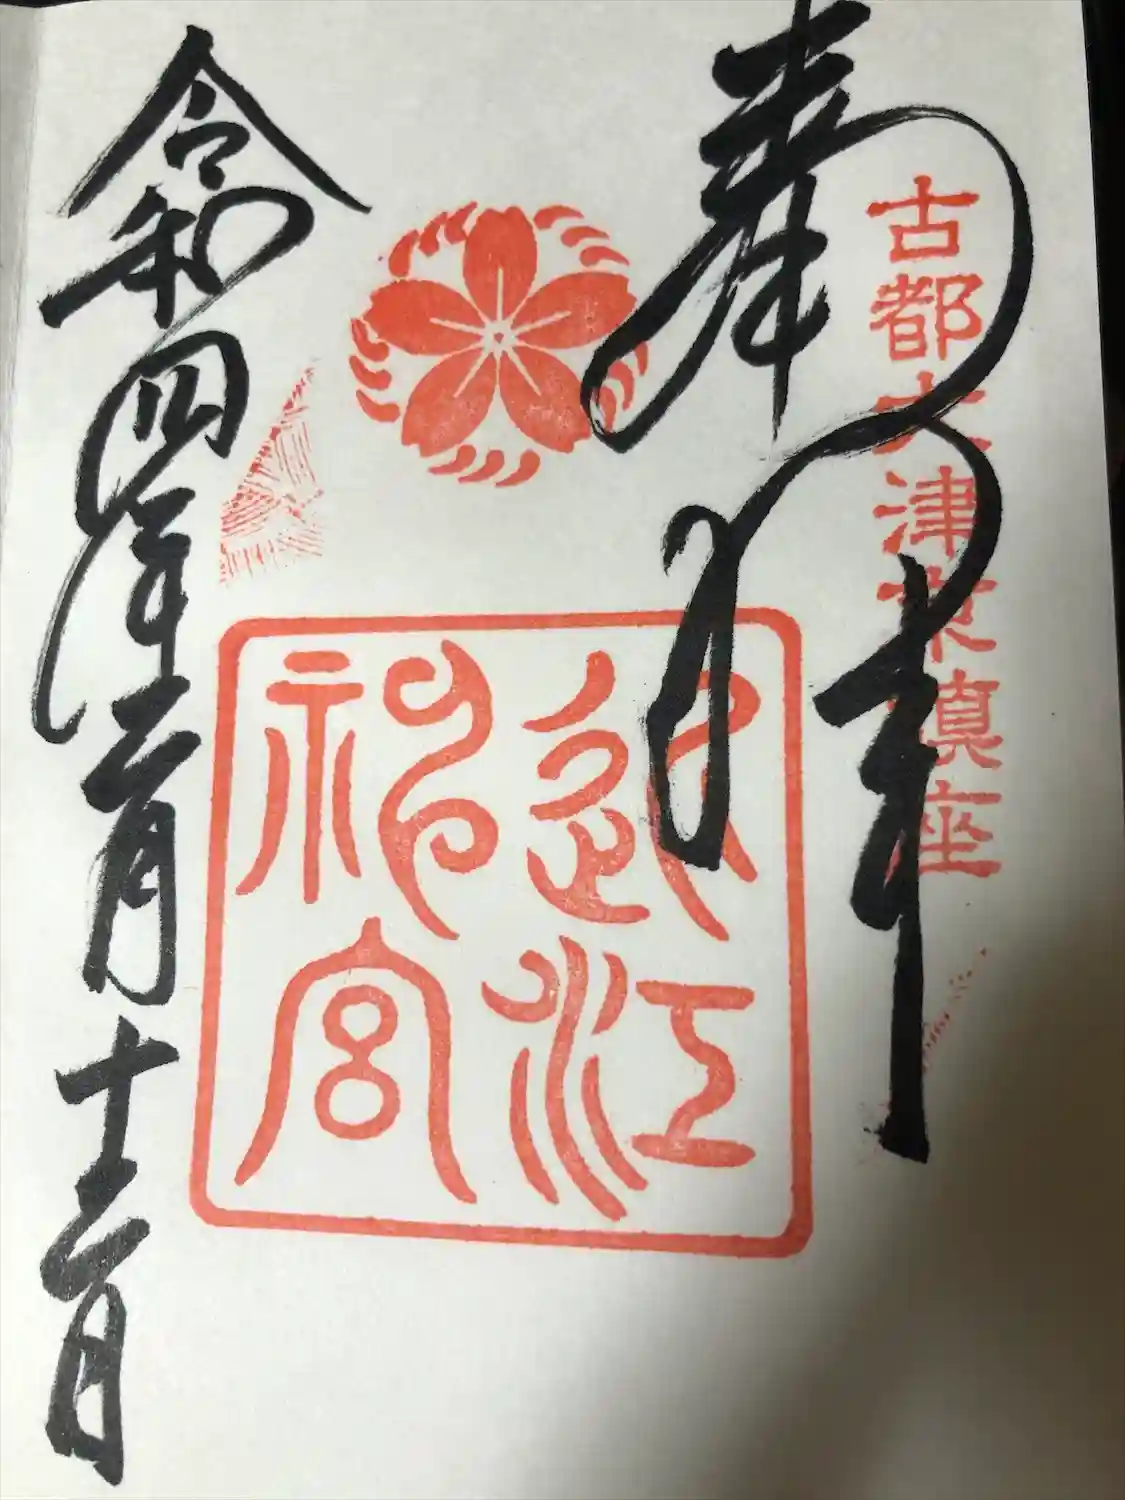 奉拝
古都大津京鎮座
近江
神宮
令和四年二月十二日